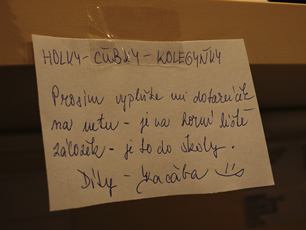 HOLKY - ČUBKY - KOLEGYŇKY
Prosím vyplňte mi dotazníček
na netu - je na horní liště
záložek - je to do školy.
Díky - Kačaba